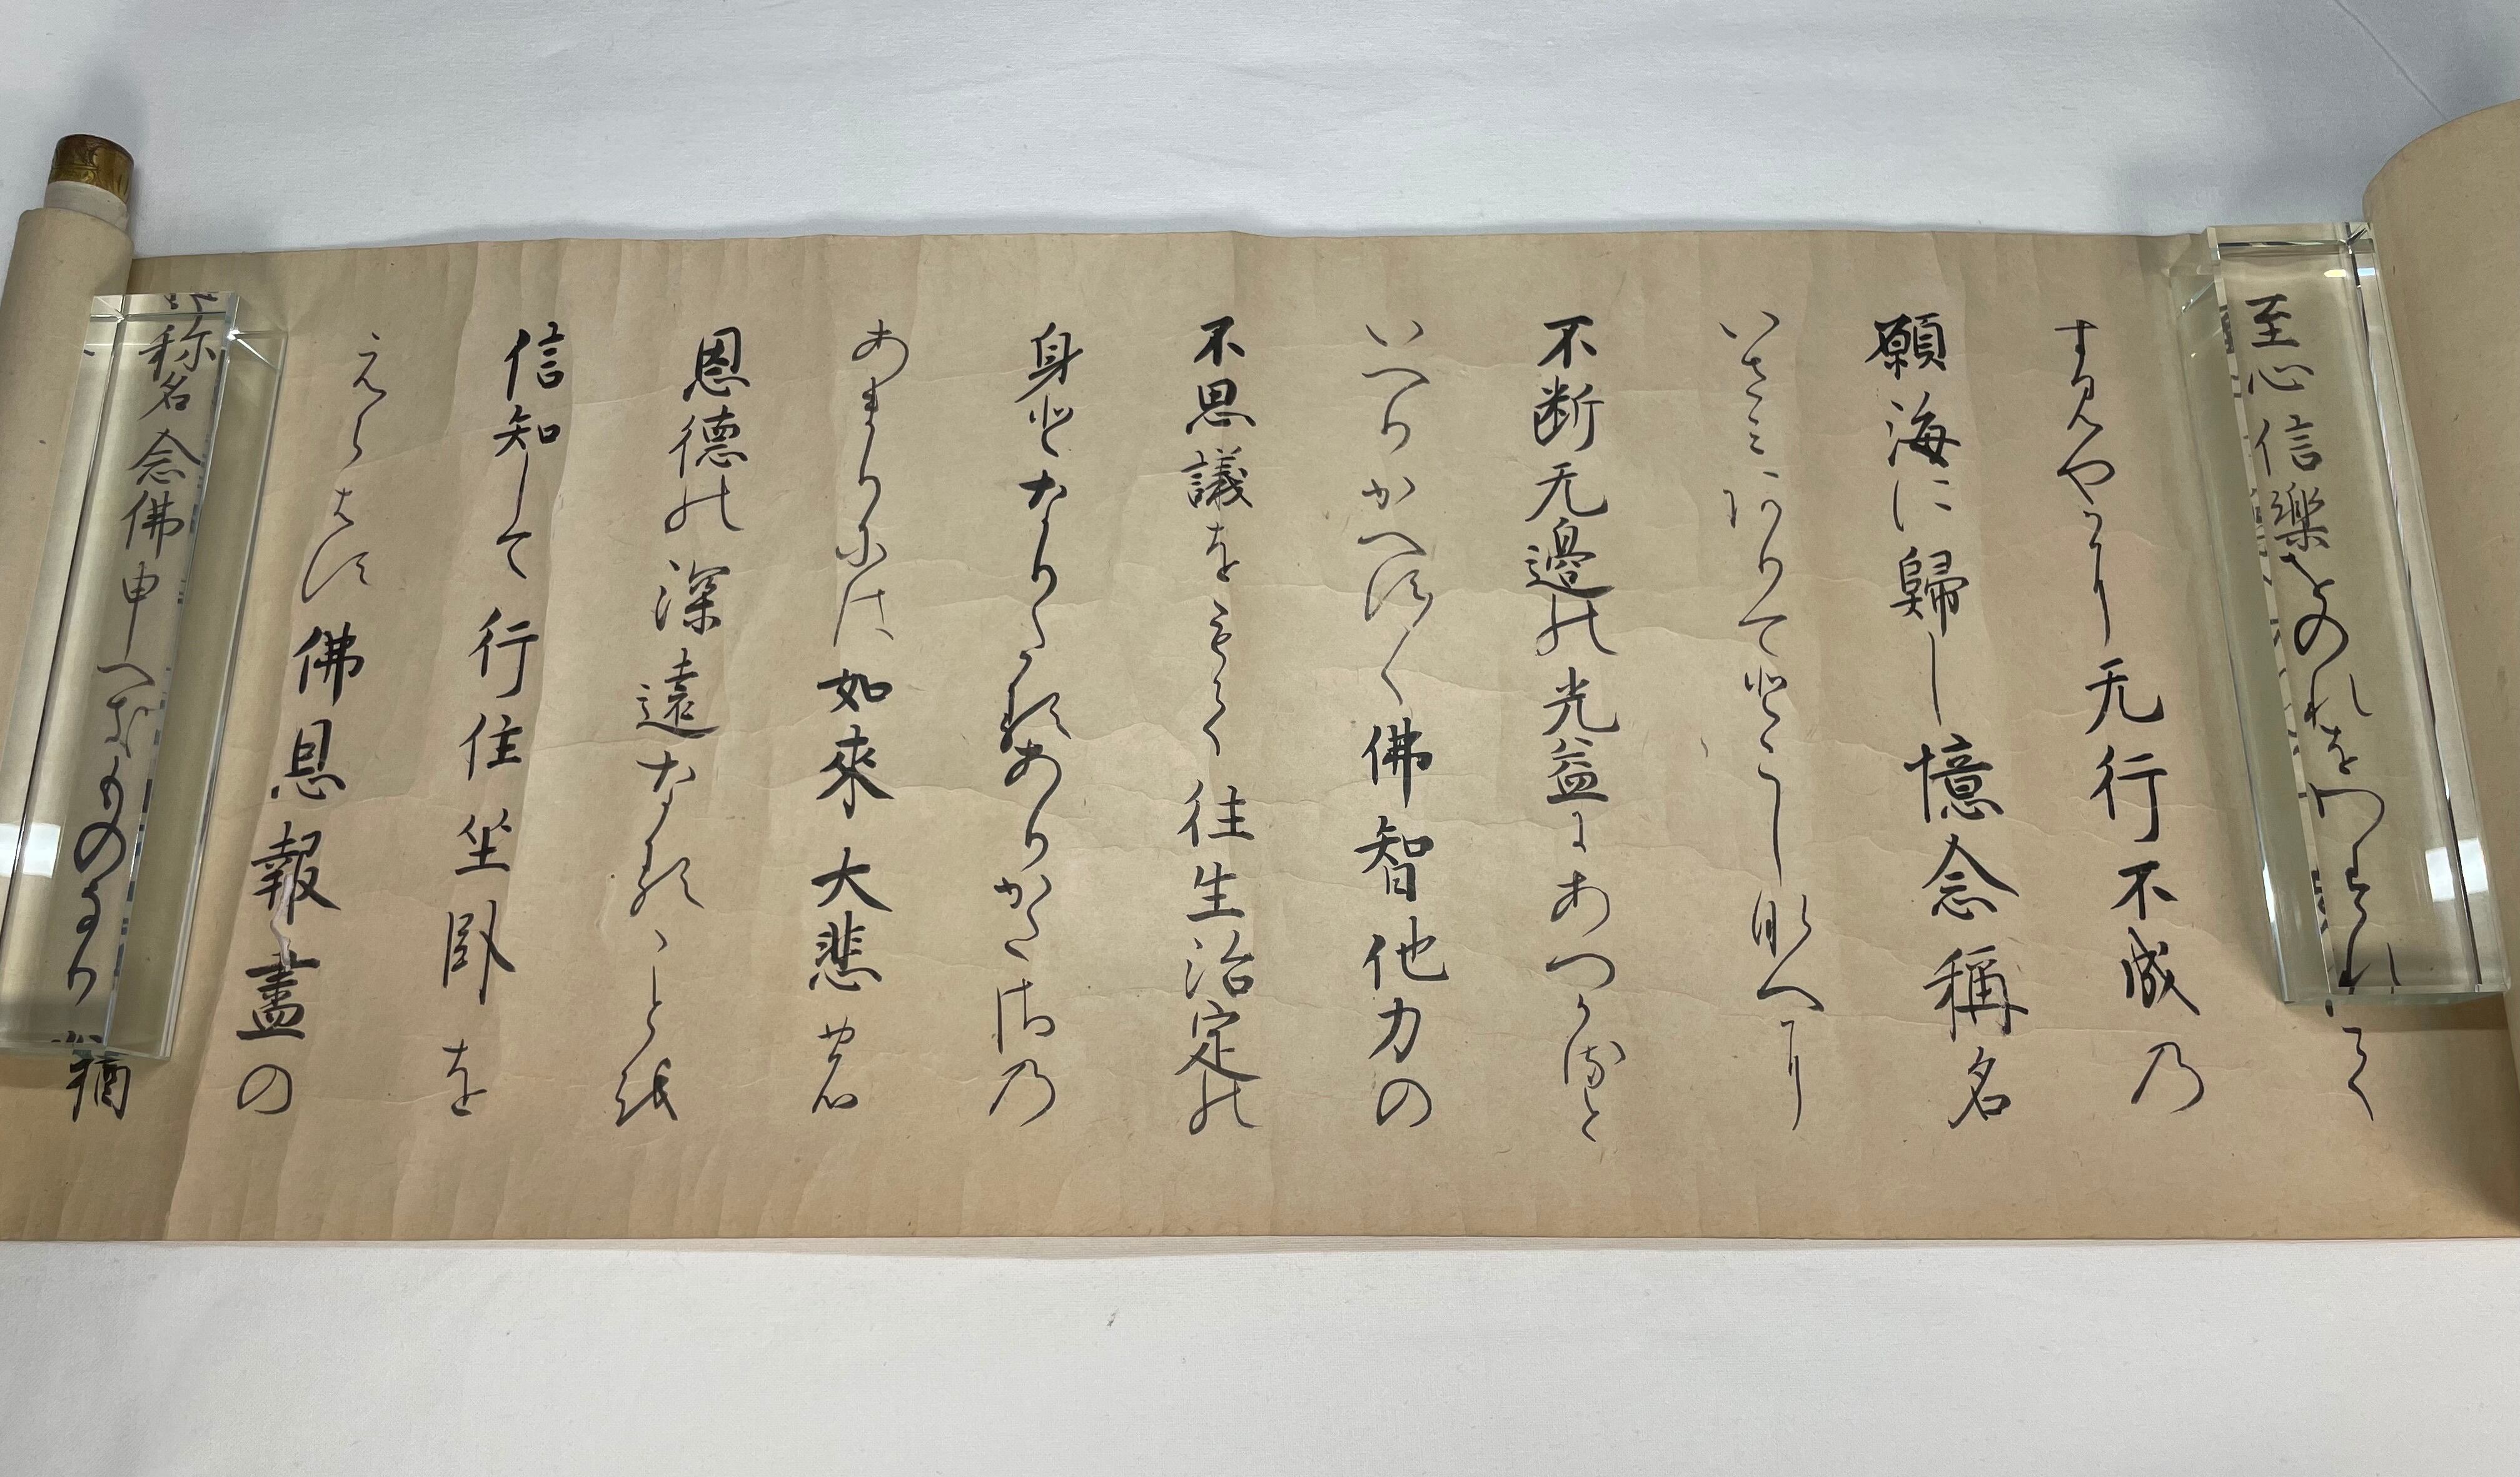 至心信樂をのれをわすれて
すみやかに无行不成乃
願海に歸し憶念稱名
いさみありてとこしなへに
不断无邊の光益にあつかると
いへりかへす〳〵佛智他力の
不思議をもて往生治定の
身となりたるありかたさ乃
あまりには如來大悲
恩德の深遠なることを
信知して行住坐卧を
えらはす佛恩報盡の
称名念佛申へきものなり